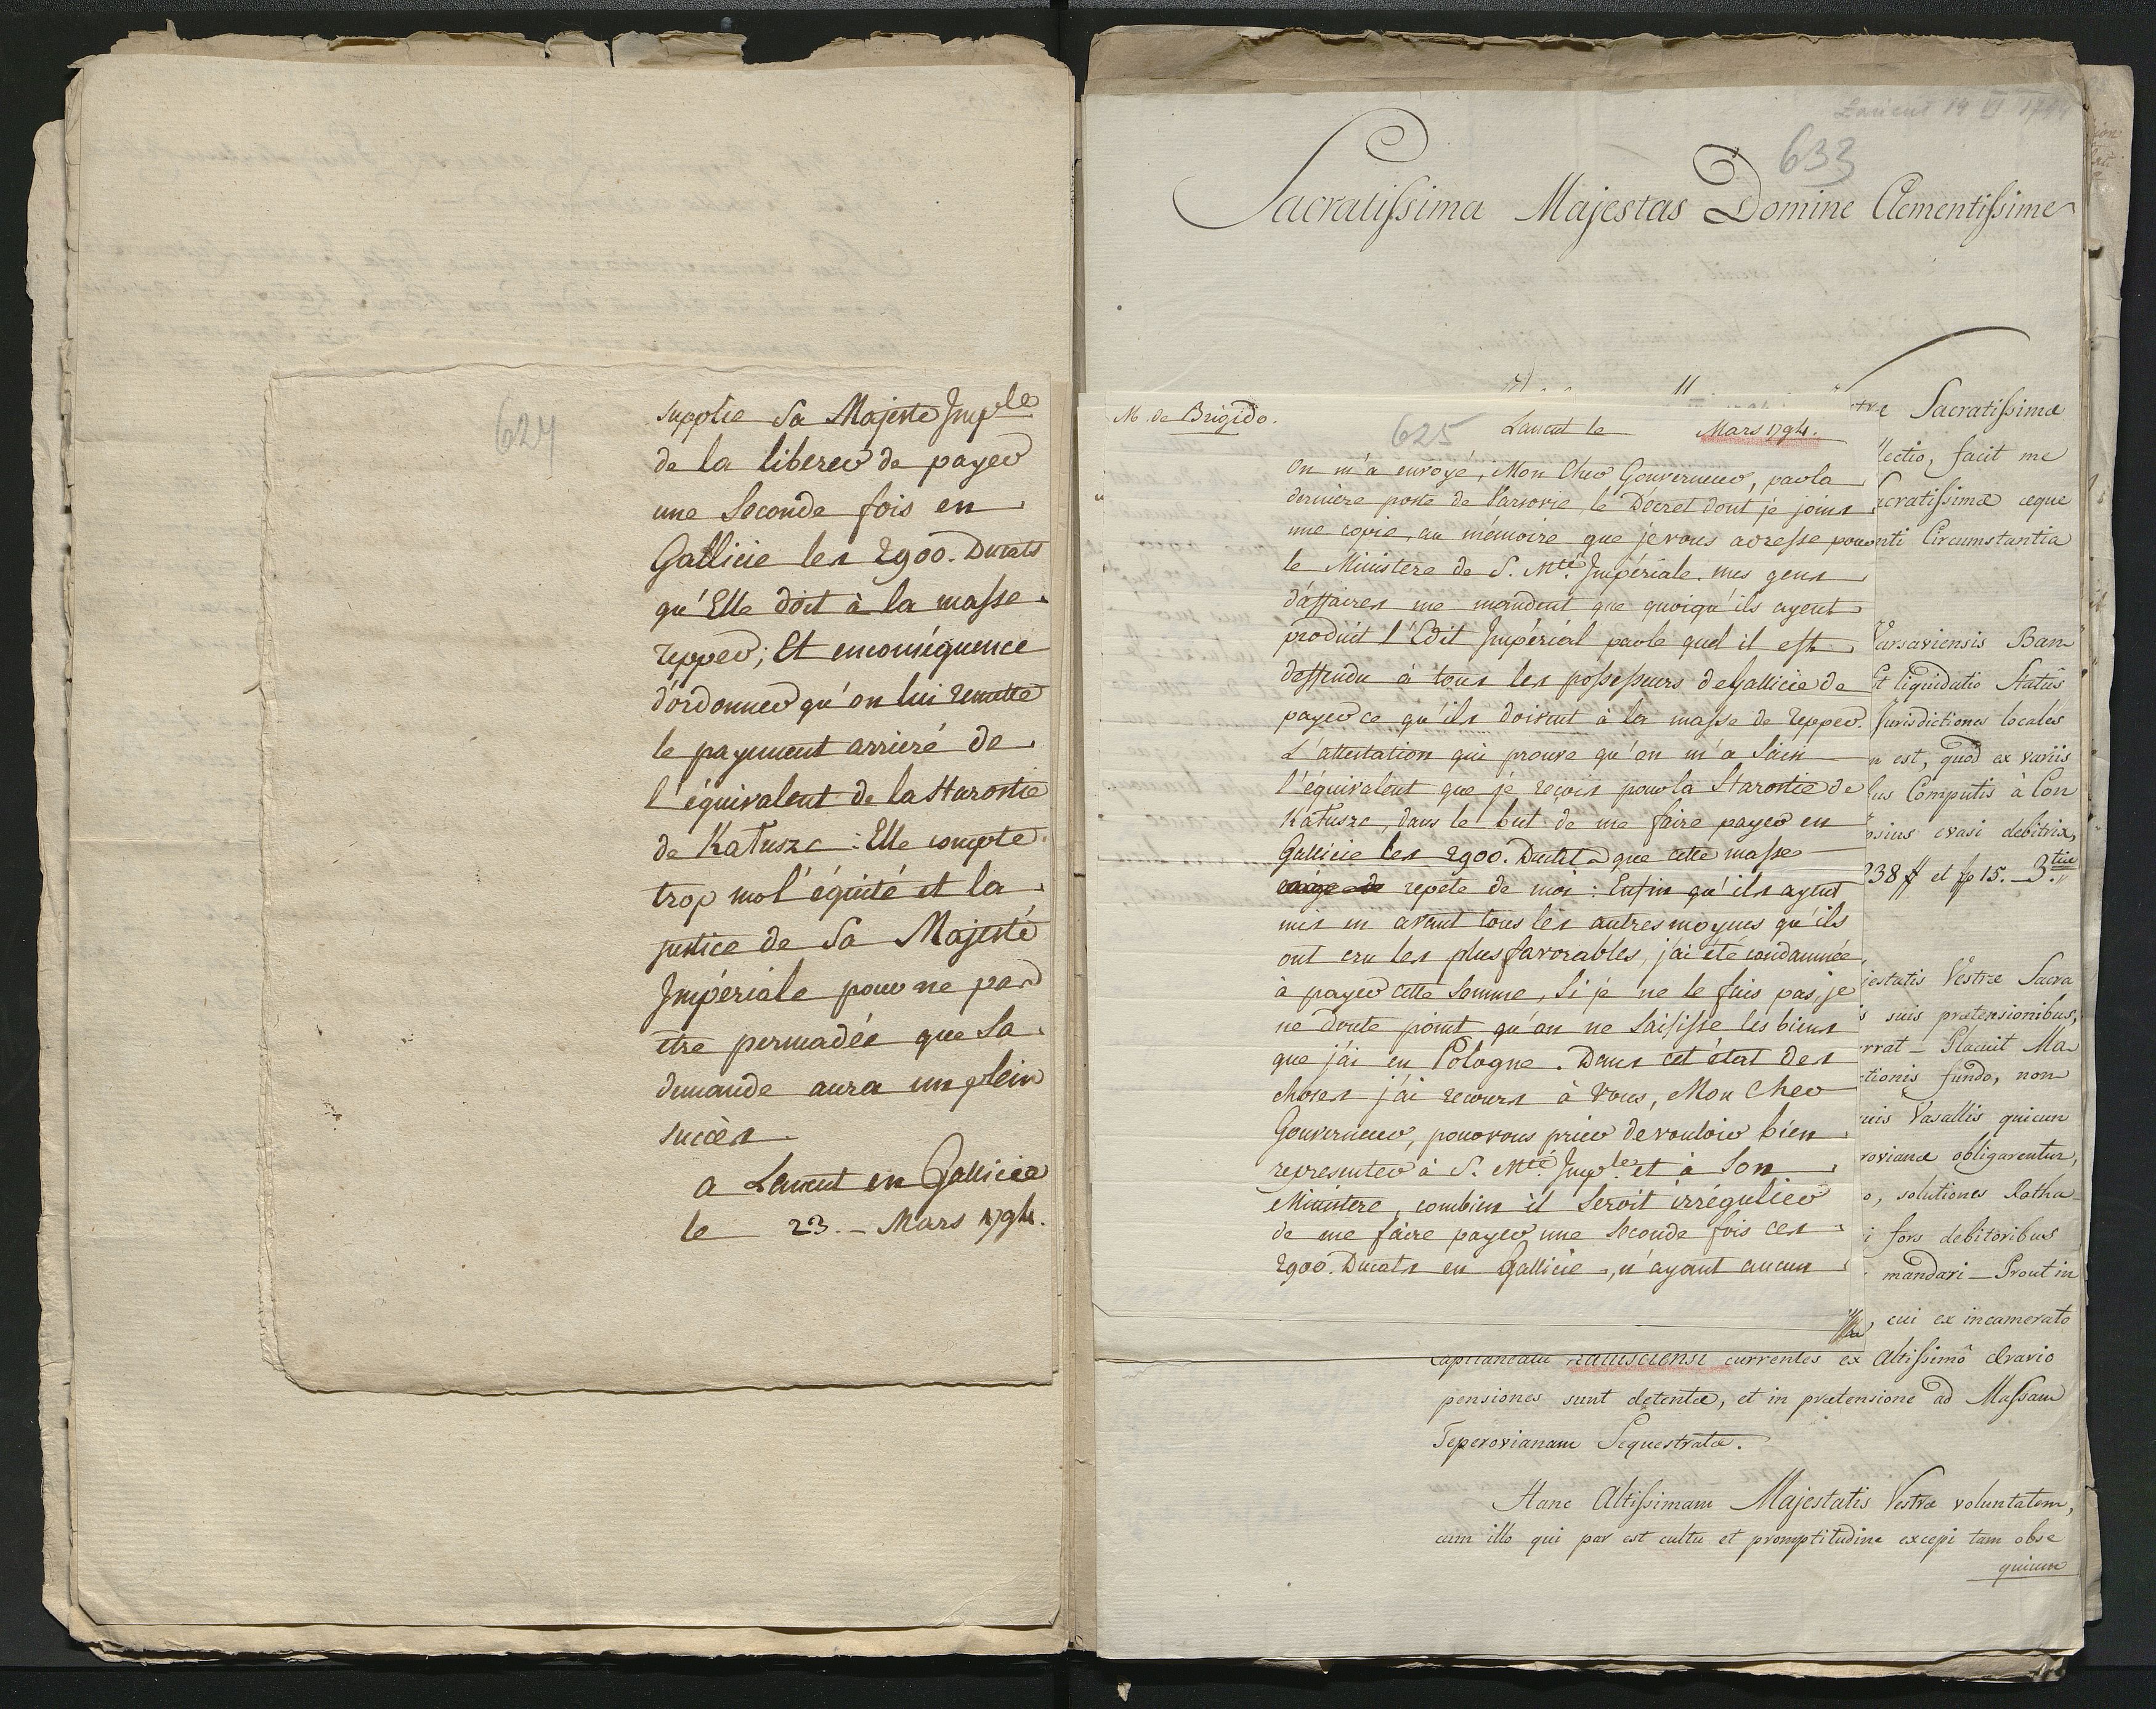 624
supplie Sa Majesté Imp.le
de la liberer de payer
une Seconde fois en
Gallicie les 2900. Ducats
qu'Elle doit à la masse
Tepper; Et enconséquence
d'ordonner qu'on lui remette
le payement arrieré de
l'équivalent de la Starostie
de Katusze: Elle compte
trop sur l'équité et la
justice de Sa Majesté
Impériale pour ne pas
être persuadée que Sa
demande aura un plein
succès
a Lancut en Gallicie
le 23. - Mars 1794.
Lancut 14 VI 1794
633
Sacratissima Majestas Domine Clementissime
M. de Brigido.
625
Lancut le Mars 1794.
On m'a envoyé, Mon Cher Gouverneur, par la
derniere poste de Varsovie, le Decret dont je joins
une copie, au mémoire que je vous adresse pour
le Ministere de S. Mté Impériale. mes gens
d'affaires me mandent que quoiqu'ils ayent
produit l'Edit Impérial par le quel il est
deffendu à tous les possesseurs de Gallicie de
payer ce qu'ils doivent à la masse de Tepper.
L'attestation qui prouve qu'on m'a saisi
l'équivalent que je reçois pour la Starostie de
Katusze, dans le but de me faire payer en
Gallicie les 2900. Ducats que cette masse
repete de moi: Enfin qu'ils ayent
mis en avant tous les autres moyens qu'ils
ont cru les plus favorables, j'ai été condamnée
à payer cette Somme, Si je ne le fais pas, je
ne doute point qu'on ne Saisisse les biens
que j'ai en Pologne. Dans cet état des
choses j'ai recours à Vous, Mon Cher
Gouverneur, pour vous prier de vouloir bien
representer à S. Mté Imp.le et à Son
Ministere, combien il Seroit irrégulier
de me faire payer une Seconde fois ces
2900. Ducats en Gallicie, n'ayant aucun
Sacratissimæ
lectio, facit me
acratissimæ æque
nti Circumstantia
Varsaviensis Ban
Et liquidatio Statûs
Jurisdictiones locales
n est, quod ex variis
bus Computis à Con
osius evasi debitrix,
238 ff et fp 15. 3.tiæ
jestatis Vestræ Sacra
s suis prætensionibus,
rrat - Placuit Ma
ctionis fundo, non
uis Vasallis quicun
roviana obligarentur,
o, solutiones Ratha
i fors debitoribus
mandari - Prout in
, cui ex incamerato
Capitaneatu Katusciensi currentes ex Altissimô Ærario
pensiones sunt detentæ, et in prætensione ad Massam
Teperovianam Sequestratæ.
Hanc Altissimam Majestatis Vestræ voluntatem,
cum illo qui par est cultu et promptitudine excepi tam obse
quium